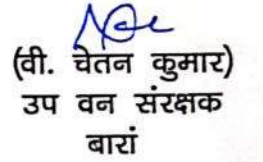 (वी. चेतन कुमार)
उप वन संरक्षक
बारां